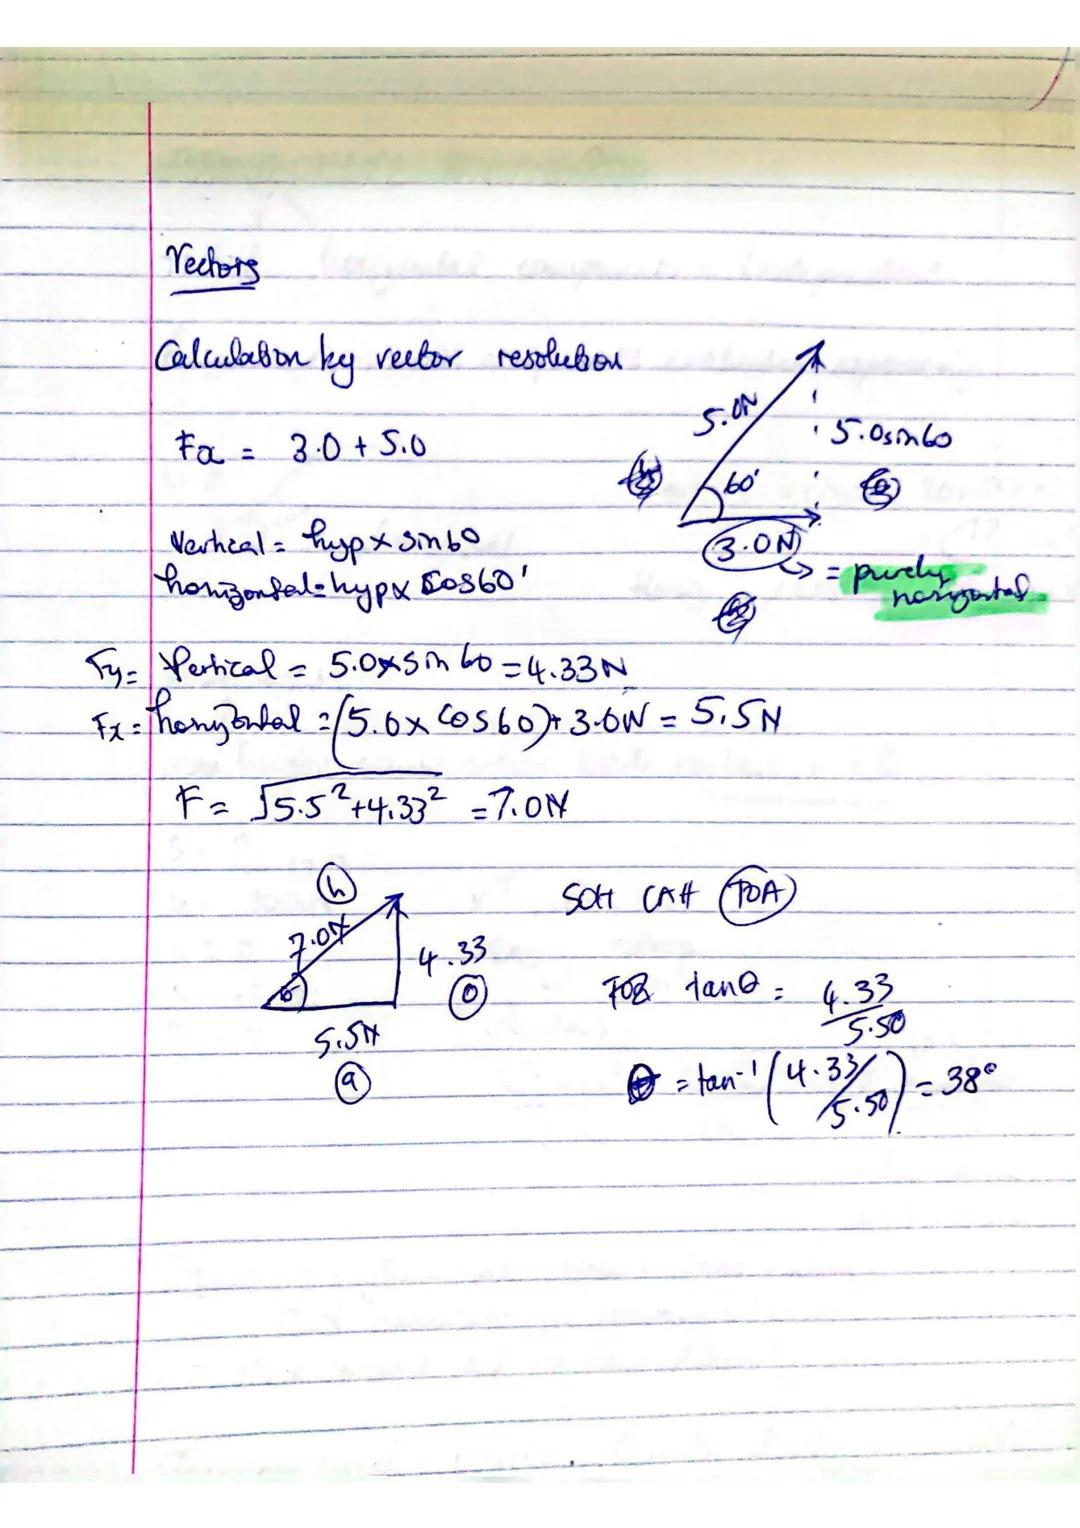 Vectors
Calculation by vector resolution
Fx = 3.0 + 5.0
5.0N
5.0sin60
60°
3.0N
= purely
horizontal
Vertical = hyp x sin60
horizontal = hyp x cos60°
Fy = Vertical = 5.0 x sin 60 = 4.33N
Fx = horizontal = (5.0 x cos60) + 3.0N = 5.5N
F = √5.5²+4.33² = 7.0N
h
SOH CAH TOA
7.0N
4.33
o
θ
5.5N
a
tanθ = 4.33/5.50
θ = tan-¹(4.33/5.50) = 38°